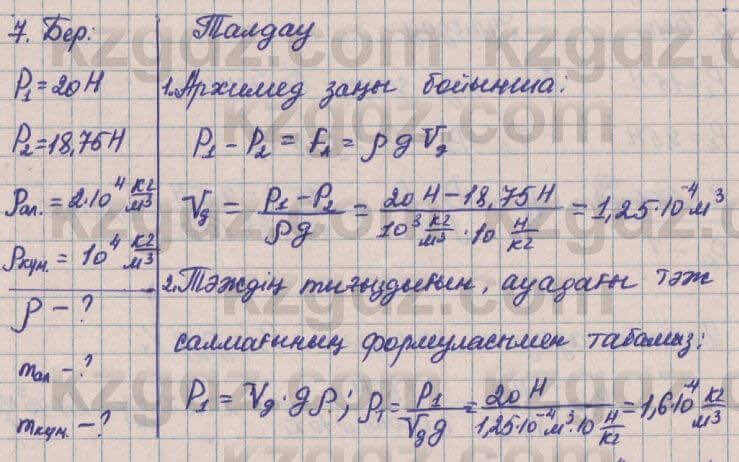 7. Бер:
P₁=20Н
P₂=18,75Н
ρал.=2·10⁴ кг/м³
ρкүм.=10⁴ кг/м³
ρ-?
mал-?
mкүм.-?
Талдау
1.Архимед заңы бойынша:
P₁-P₂=FА=ρgVg
Vg=(P₁-P₂)/(ρg)=(20Н-18,75Н)/(10³ кг/м³·10 Н/кг)=1,25·10⁻⁴м³
2.Тәждің тығыздығын, ауадағы тәж
салмағының формуласымен табамыз:
P₁=Vg·gρ; ρ₁=P₁/(Vgg)=20Н/(1,25·10⁻⁴м³·10 Н/кг)=1,6·10⁻⁴ кг/м³
kzgdz.com